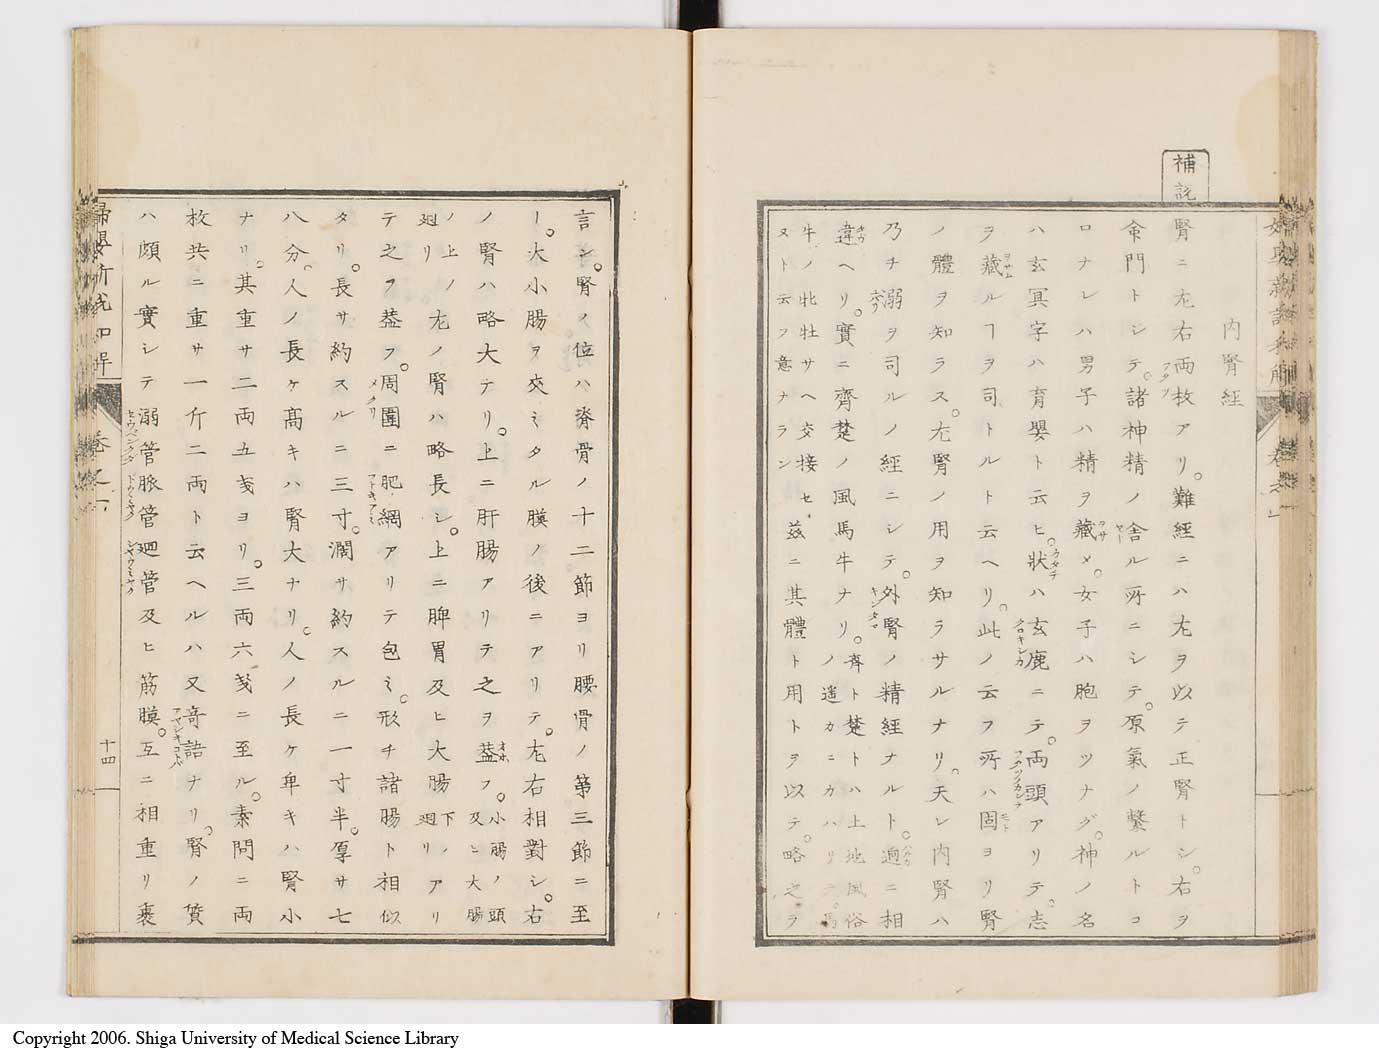 補説
内腎経
腎ニ左右両枚アリ。難経ニハ左ヲ以テ正腎トシ。右ヲ
命門トシテ。諸神精ノ舎ル所ニシテ。原氣ノ繋ルトコ
ロナレハ男子ハ精ヲ藏メ。女子ハ胞ヲツナグ。神ノ名
ハ玄冥字ハ育嬰ト云ヒ。状ハ玄鹿ニテ。両頭アリテ。志
ヲ藏ルヿヲ司トルト云ヘリ。此ノ云フ所ハ固ヨリ腎
ノ體ヲ知ラス。左腎ノ用ヲ知ラサルナリ。夫レ内腎ハ
乃チ溺ヲ司ルノ經ニシテ。外腎ノ精經ナルト。逈ニ相
違ヘリ。實ニ齊楚ノ風馬牛ナリ。斉ト楚トハ土地風俗
ノ遥カニカハリテ。馬
牛ノ牝牡サヘ交接セ
ヌト云フ意ナラン
茲ニ其體ト用トヲ以テ。略之ヲ
言ン。腎ノ位ハ脊骨ノ十二節ヨリ腰骨ノ第三節ニ至
ー。大小腸ヲ交ミタル膜ノ後ニアリテ。左右相對シ。右
ノ腎ハ略大テリ。上ニ肝腸アリテ之ヲ葢フ。小腸ノ頭
及ヒ大腸
ノ上ノ
廻リ
左ノ腎ハ略長シ。上ニ脾胃及ヒ大腸下ノ
廻リアリ
テ之ヲ葢フ。周圍ニ肥網アリテ包ミ。形チ諸腸ト相似
タリ。長サ約スルニ三寸。濶サ約スルニ一寸半。厚サ七
八分。人ノ長ケ髙キハ腎大ナリ。人ノ長ケ卑キハ腎小
ナリ。其重サ二両五戔ヨリ。三両六戔ニ至ル。素問ニ両
枚共ニ重サ一斤二両ト云ヘルハ又竒語ナリ。腎ノ質
ハ頗ル實シテ溺管脈管廻管及ヒ筋膜。互ニ相重リ裹
十四
Copyright 2006. Shiga University of Medical Science Library